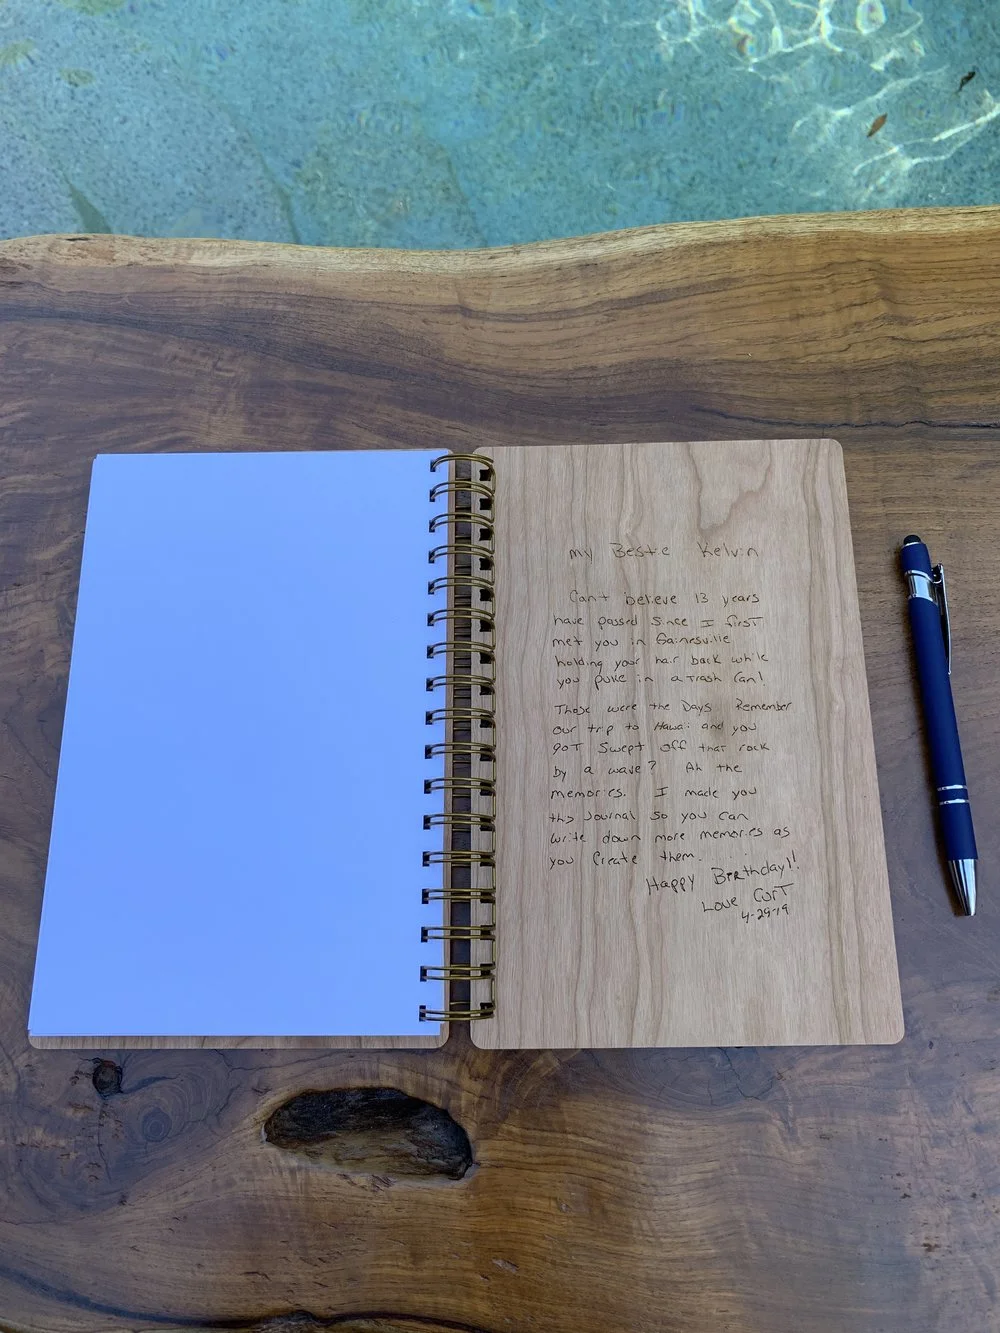 my Bestie Kelvin
Can't believe 13 years
have passed since I first
met you in Gainesville
holding your hair back while
you puke in a trash can!
Those were the Days Remember
our trip to Hawaii and you
got swept off that rock
by a wave? Ah the
memories. I made you
this Journal so you can
write down more memories as
you Create them. . . .
Happy Birthday!!
Love Curt
4-29-19